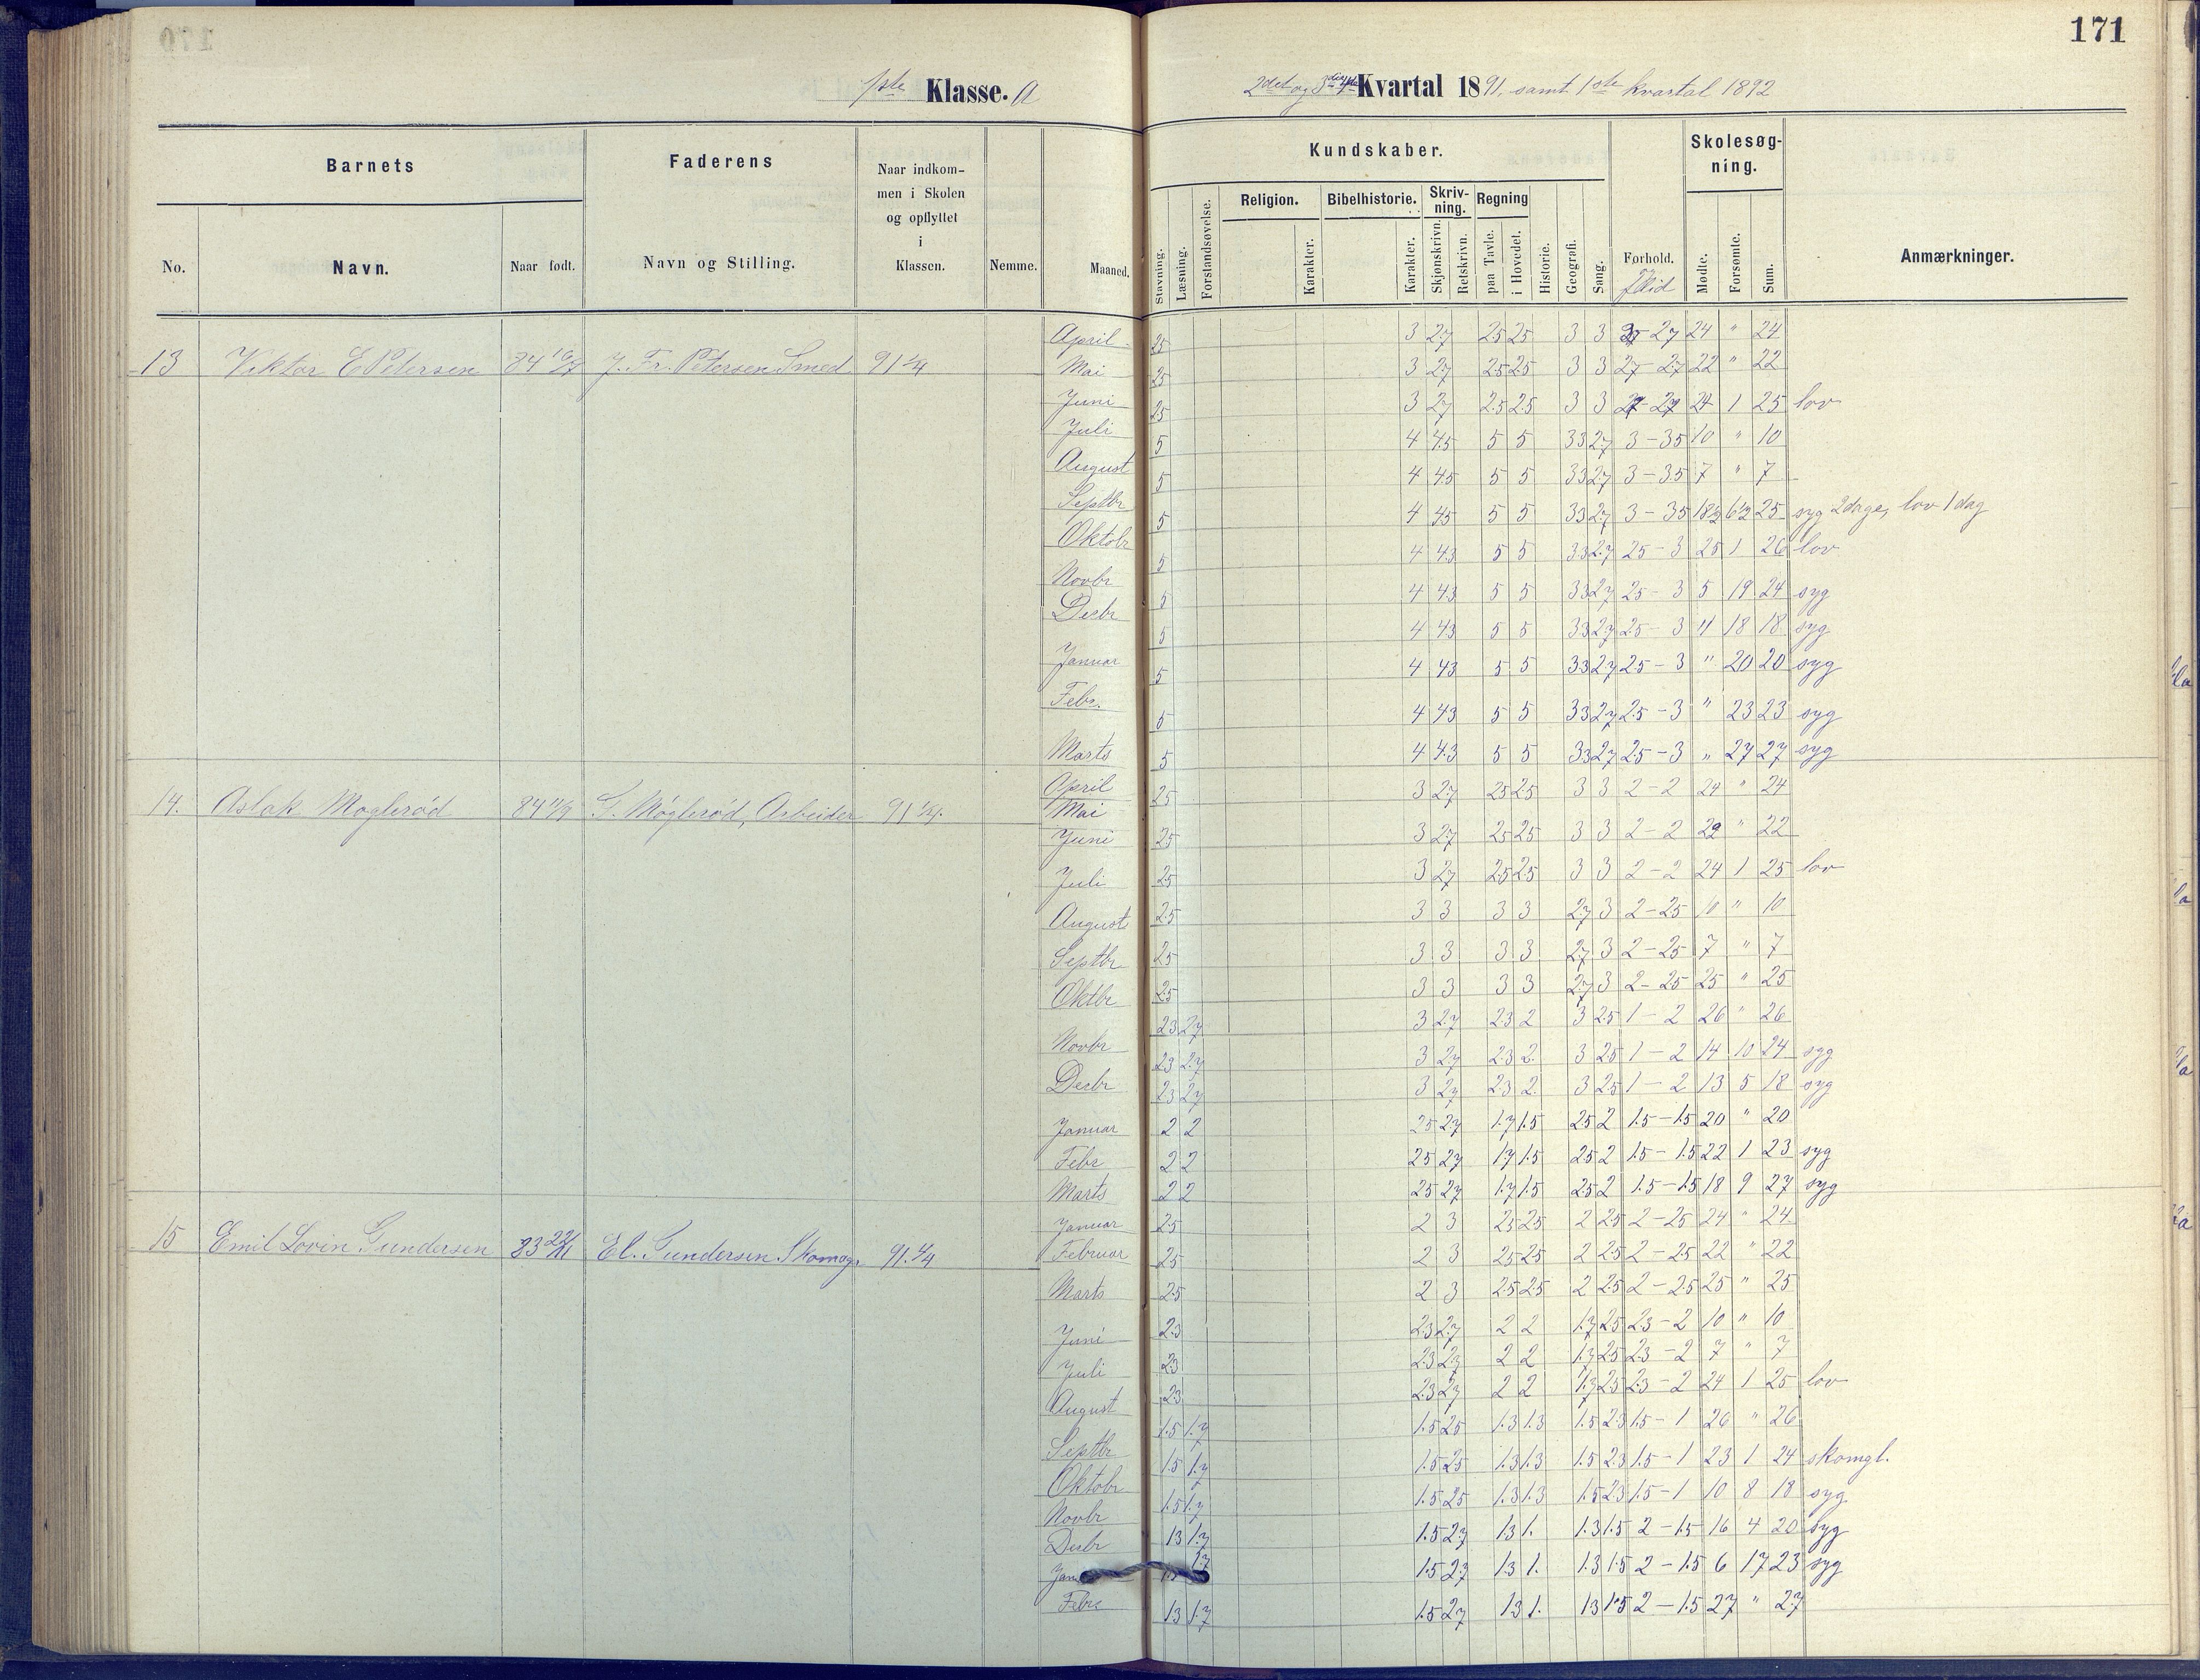 171
1ste Klasse. A
2det og 3die 4de Kvartal 1891, samt 1ste kvartal 1892
Barnets
Faderens
Naar indkom-
men i Skolen
og opflyttet
i
Klassen.
Nemme.
Maaned.
Kundskaber.
Skolesøg-
ning.
No.
Navn.
Naar født.
Navn og Stilling.
Stavning.
Læsning.
Forstandsøvelse.
Religion.
Karakter.
Bibelhistorie.
Karakter.
Skriv-
ning.
Skjønskrivn.
Retskrivn.
Regning
paa Tavle.
i Hovedet.
Historie.
Geografi.
Sang.
Forhold.
Flid
Mødte.
Forsømte.
Sum.
Anmærkninger.
13 Viktor E Petersen 84 J. Fr. Petersen Smed 91 1/4
April 25 3 27 25 25 3 3 27 24 " 24
Mai 25 3 27 25 25 3 3 27 - 27 22 " 22
Juni 25 3 27 25 25 3 3 27 - 27 24 1 25 lov
Juli 5 4 45 5 5 33 27 3 - 35 10 " 10
August 5 4 45 5 5 33 27 3 - 35 7 " 7
Septbr 5 4 45 5 5 33 27 3 - 35 18½ 6½ 25 syg 2dage, lov 1dag
Oktobr 5 4 43 5 5 33 27 25 - 3 25 1 26 lov
Novbr 5 4 43 5 5 33 27 25 - 3 5 19 24 syg
Desbr 5 4 43 5 5 33 27 25 - 3 " 18 18 syg
Januar 5 4 43 5 5 33 27 25 - 3 " 20 20 syg
Febr. 5 4 43 5 5 33 27 25 - 3 " 23 23 syg
Marts 5 4 43 5 5 33 27 25 - 3 " 27 27 syg
14. Aslak Møglerød 84 11/9 G. Møglerød, Arbeider 91 1/4.
April 25 3 27 25 25 3 3 2 - 2 24 " 24
Mai
Juni 25 3 27 25 25 3 3 2 - 2 22 " 22
Juli 25 3 27 25 25 3 3 2 - 2 24 1 25 lov
August 25 3 3 3 3 27 3 2 - 25 10 " 10
Septbr 25 3 3 3 3 27 3 2 - 25 7 " 7
Oktbr 25 3 3 3 3 27 3 2 - 25 25 " 25
23 27 3 27 23 2 3 25 1 - 2 26 " 26
Novbr 23 27 3 27 23 2 3 25 1 - 2 14 10 24 syg
Desbr 23 27 3 27 23 2 3 25 1 - 2 13 5 18 syg
Januar 2 2 25 27 1.7 1.5 25 2 1.5 - 1.5 20 " 20
Febr 2 2 25 27 1.7 1.5 25 2 1.5 - 1.5 22 1 23 syg
Marts 2 2 25 27 1.7 1.5 25 2 1.5 - 1.5 18 9 27 syg
15 Emil Lovin Gundersen 83 22/11 El. Gundersen Skomag. 91. 1/4
Januar 25 2 3 25 25 2 25 2 - 25 24 " 24
Februar 25 2 3 25 25 2 25 2 - 25 22 " 22
Marts 25 2 3 25 25 2 25 2 - 25 25 " 25
Juni 23 23 27 2 2 1.7 25 23 - 2 10 " 10
Juli 23 23 27 2 2 1.7 25 23 - 2 7 " 7
August 23 23 27 2 2 1.7 25 23 - 2 24 1 25 lov
1.5 1.7 1.5 25 1.3 1.3 1.5 23 1.5 - 1 26 " 26
Septbr 1.5 1.7 1.5 25 1.3 1.3 1.5 23 1.5 - 1 23 1 24 skomgl.
Oktobr 1.5 1.7 1.5 25 1.3 1.3 1.5 23 1.5 - 1 10 8 18 syg
Novbr
Desbr 13 1.7 1.5 27 13 1. 1.3 1.5 2 - 1.5 16 4 20 syg
Jan 1.7 1.5 27 13 1. 1.3 1.5 2 - 1.5 6 17 23 syg
Febr 13 1.7 1.5 27 13 1. 13 1.5 2 - 1.5 27 " 27